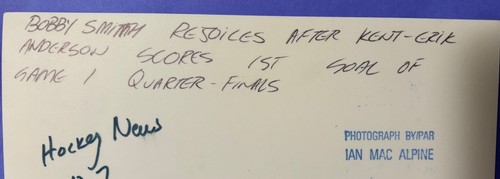 BOBBY SMITH REJOICES AFTER KENT-ERIK
ANDERSON SCORES 1ST GOAL OF
GAME 1 QUARTER-FINALS
Hockey News
PHOTOGRAPH BY/PAR
IAN MAC ALPINE